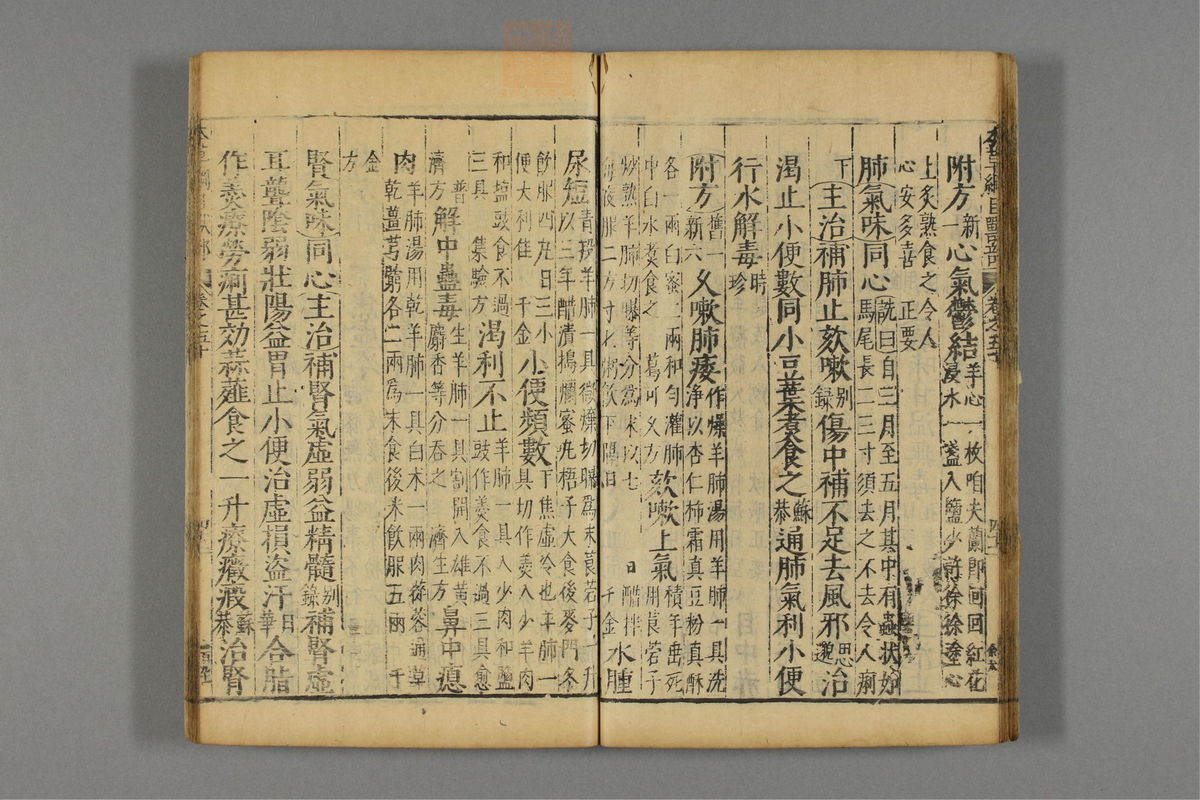 附方新一心氣鬱結羊心一枚咱夫蘭即回回紅花浸水一盞入鹽少許徐徐塗心
上炙熟食之令人心安多喜正要
肺氣味同心詵曰自三月至五月其中有蟲狀如馬尾長二三寸須去之不去令人痢
下主治補肺止欬嗽别録傷中補不足去風邪思邈治
渴止小便數同小豆葉煮食之蘇恭通肺氣利小便
行水解毒時珍
附方舊一新六久嗽肺痿作燥羊肺湯用羊肺一具洗淨以杏仁柿霜真豆粉真酥
各一兩白蜜二兩和勻灌肺中白水煮食之葛可久方欬嗽上氣積年垂死用莨菪子
炒熟羊肺切曝等分爲末以七日醋拌每夜服二方寸匕粥飲下隔日千金水腫
尿短青羖羊肺一具微煠切曝爲末莨菪子一升以三年醋漬搗爛蜜丸梧子大食後麥門冬
飲服四丸日三小便大利佳千金小便頻數下焦虛冷也羊肺一具切作羹入少羊肉
和鹽豉食不過三具集驗方渴利不止羊肺一具入少肉和鹽豉作羹食不過三具愈
普濟方解中蠱毒生羊肺一具割開入雄黄麝香等分吞之濟生方鼻中瘜
肉羊肺湯用乾羊肺一具白术一兩肉蓯蓉通草乾薑芎藭各二兩爲末食後米飲服五兩千
金方
腎氣味同心主治補腎氣虛弱益精髓别録補腎虛
耳聾陰弱壯陽益胃止小便治虛損盜汗日華合脂
作羹療勞痢甚効蒜薤食之一升療癥瘕蘇恭治腎